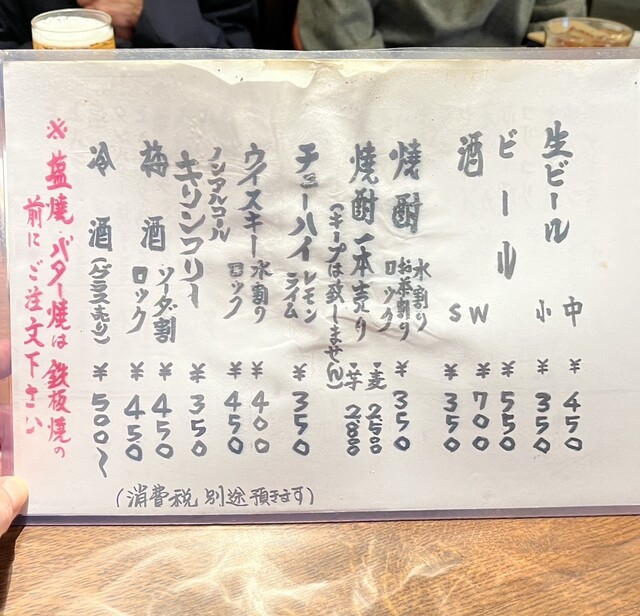 生ビール 中 ¥450
小 ¥350
ビール ¥550
酒 W ¥700
S ¥350
焼酎 水割り お茶割り ロック ¥350
焼酎一本売り ・麦 2500
(キープは致しません) ・芋 2800
チューハイ レモン ライム ¥350
ウイスキー 水割り ¥400
ロック ¥450
ノンアルコール
キリンフリー ¥350
梅酒 ソーダ割 ¥450
ロック ¥450
冷酒 (グラス売り) ¥500〜
※塩焼・バター焼は鉄板焼の
前にご注文下さい
(消費税 別途預きます)